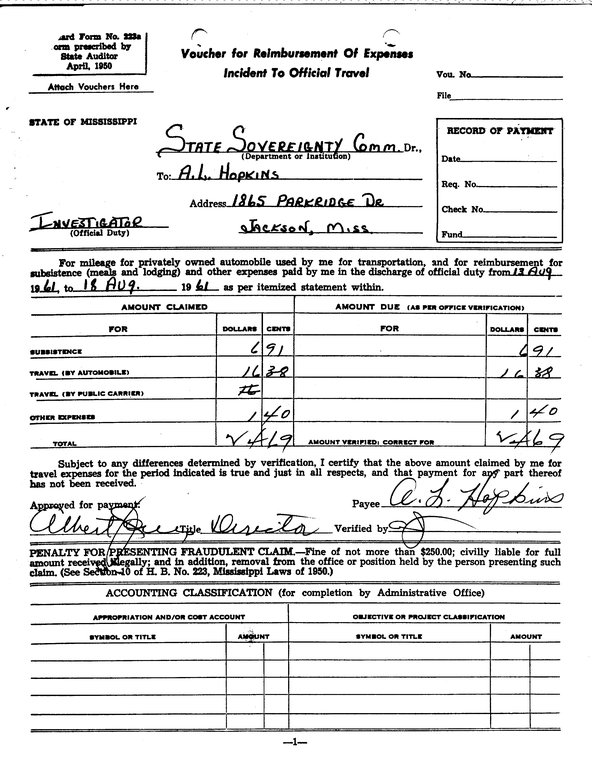 ard Form No. 223a
orm prescribed by
State Auditor
April, 1950
Attach Vouchers Here
Voucher for Reimbursement Of Expenses
Incident To Official Travel
Vou. No.
File
STATE OF MISSISSIPPI
STATE SOVEREIGNTY COMM. Dr.,
(Department or Institution)
To: A.L. HOPKINS
Address 1865 PARKRIDGE DR
JACKSON, MISS
INVESTIGATOR
(Official Duty)
RECORD OF PAYMENT
Date
Req. No.
Check No.
Fund
For mileage for privately owned automobile used by me for transportation, and for reimbursement for
subsistence (meals and lodging) and other expenses paid by me in the discharge of official duty from AUG
1961, to 18 AUG. 1961 as per itemized statement within.
AMOUNT CLAIMED AMOUNT DUE (AS PER OFFICE VERIFICATION)
FOR DOLLARS CENTS FOR DOLLARS CENTS
SUBSISTENCE 6 91 6 91
TRAVEL (BY AUTOMOBILE) 16 38 16 38
TRAVEL (BY PUBLIC CARRIER)
OTHER EXPENSES 1 40 1 40
TOTAL 24 69 AMOUNT VERIFIED; CORRECT FOR 24 69
Subject to any differences determined by verification, I certify that the above amount claimed by me for
travel expenses for the period indicated is true and just in all respects, and that payment for any part thereof
has not been received.
Payee A. L. Hopkins
Approved for payment:
Albert Title Director Verified by
PENALTY FOR PRESENTING FRAUDULENT CLAIM.—Fine of not more than $250.00; civilly liable for full
amount received illegally; and in addition, removal from the office or position held by the person presenting such
claim. (See Section 10 of H. B. No. 223, Mississippi Laws of 1950.)
ACCOUNTING CLASSIFICATION (for completion by Administrative Office)
APPROPRIATION AND/OR COST ACCOUNT OBJECTIVE OR PROJECT CLASSIFICATION
SYMBOL OR TITLE AMOUNT SYMBOL OR TITLE AMOUNT
—1—